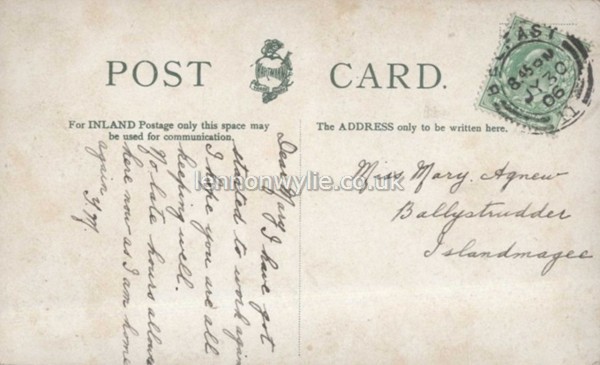 POST CARD.
For INLAND Postage only this space may
be used for communication.
The ADDRESS only to be written here.
BELFAST
8.45 PM
JY 30
06
Dear Mary I have got
started to work again
I hope you are all
keeping well.
No late hours allowed
here now as I am home
again
Miss Mary. Agnew
Ballystrudder
Islandmagee
lennonwylie.co.uk